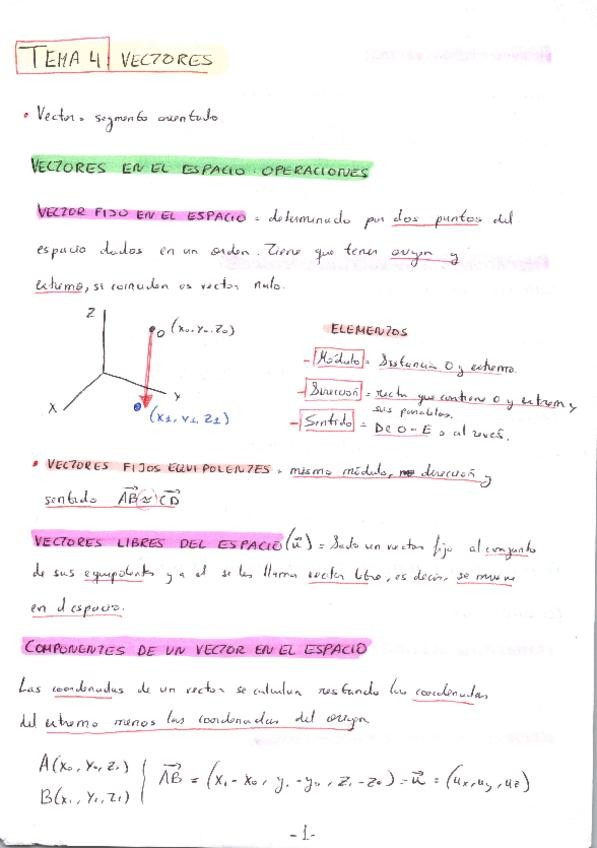 TEMA 4 VECTORES
• Vector = segmento orientado
VECTORES EN EL ESPACIO: OPERACIONES
VECTOR FIJO EN EL ESPACIO = determinado por dos puntos del
espacio dados en un orden. Tiene que tener origen y
extremo, si coinciden es vector nulo.
Z
O (x₀, y₀, z₀)
Y
X
(x₁, y₁, z₁)
ELEMENTOS
- Módulo = Distancia O y extremo.
- Dirección = recta que contiene O y extremo y
sus paralelas.
- Sentido = De O-E o al revés.
• VECTORES FIJOS EQUIPOLENTES = mismo módulo, dirección y
sentido AB ≈ CD
VECTORES LIBRES DEL ESPACIO (u) = Dado un vector fijo al conjunto
de sus equipolentes y a el se les llama vector libre, es decir, se mueve
en el espacio.
COMPONENTES DE UN VECTOR EN EL ESPACIO
Las coordenadas de un vector se calculan restando las coordenadas
del extremo menos las coordenadas del origen
A(x₀, y₀, z₀)
B(x₁, y₁, z₁)
AB = (x₁ - x₀, y₁ - y₀, z₁ - z₀) = u = (ux, uy, uz)
-1-